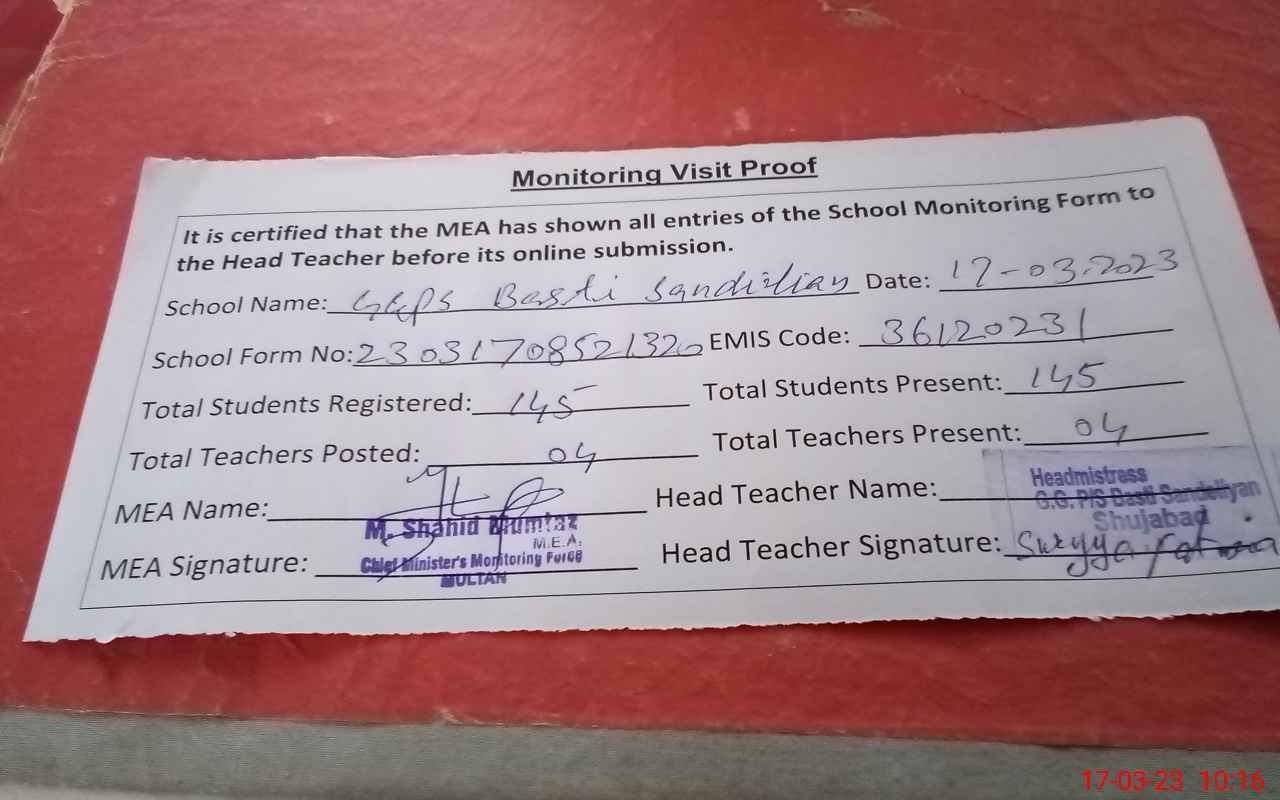 Monitoring Visit Proof
It is certified that the MEA has shown all entries of the School Monitoring Form to
the Head Teacher before its online submission.
School Name: GGPS Basti Sandilian Date: 17-03-2023
School Form No: 23031708521320 EMIS Code: 36120231
Total Students Registered: 145 Total Students Present: 145
Total Teachers Posted: 04 Total Teachers Present: 04
MEA Name: Head Teacher Name:
M. Shahid Mumtaz
M.E.A.
Chief Minister's Monitoring Force
MULTAN
Headmistress
G.G. P/S Basti Sandeliyan
Shujabad
MEA Signature: Head Teacher Signature: Suryya
17-03-23 10:16